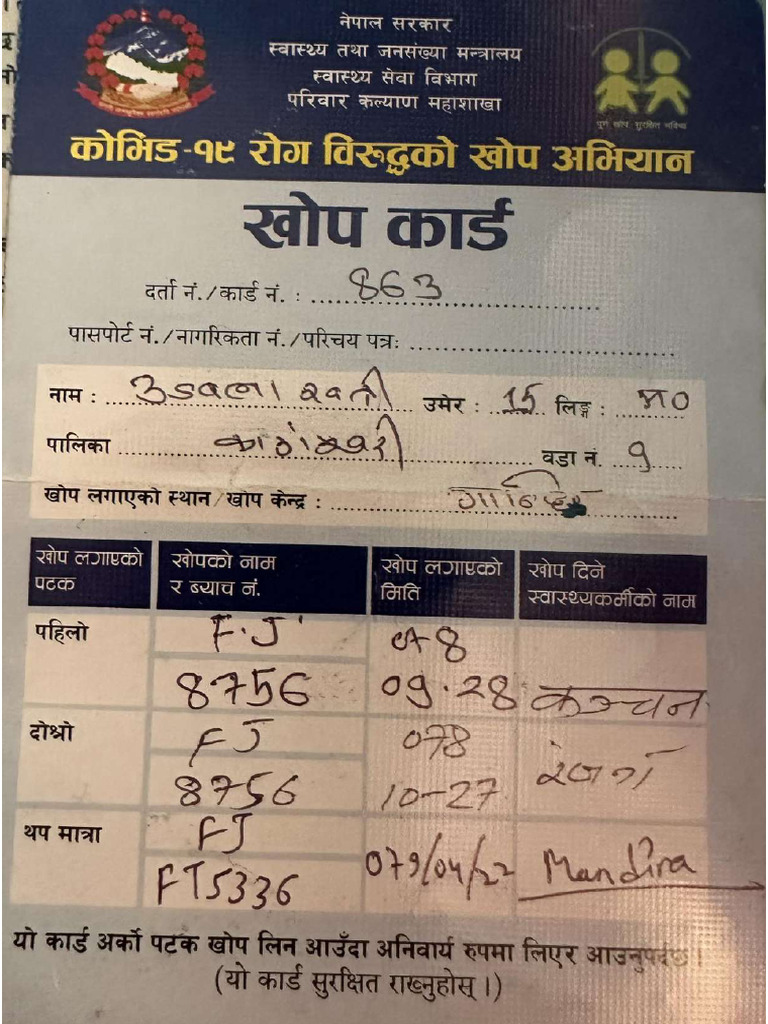 नेपाल सरकार
स्वास्थ्य तथा जनसंख्या मन्त्रालय
स्वास्थ्य सेवा विभाग
परिवार कल्याण महाशाखा
पूर्ण खोप सुरक्षित भविष्य
कोभिड-१९ रोग विरुद्धको खोप अभियान
खोप कार्ड
दर्ता नं./कार्ड नं. : 863
पासपोर्ट नं./नागरिकता नं./परिचय पत्रः
नाम : उमेर : 15 लिङ्ग : म0
पालिका वडा नं. 9
खोप लगाएको स्थान/खोप केन्द्र :
खोप लगाएको पटक खोपको नाम र ब्याच नं. खोप लगाएको मिति खोप दिने स्वास्थ्यकर्मीको नाम
पहिलो F.J 078
8756 09.28 कञ्चन
दोश्रो FJ 078
8756 10-27
थप मात्रा FJ
FT5336 079/04/22 Mandira
यो कार्ड अर्को पटक खोप लिन आउँदा अनिवार्य रुपमा लिएर आउनुपर्दछ।
(यो कार्ड सुरक्षित राख्नुहोस्।)